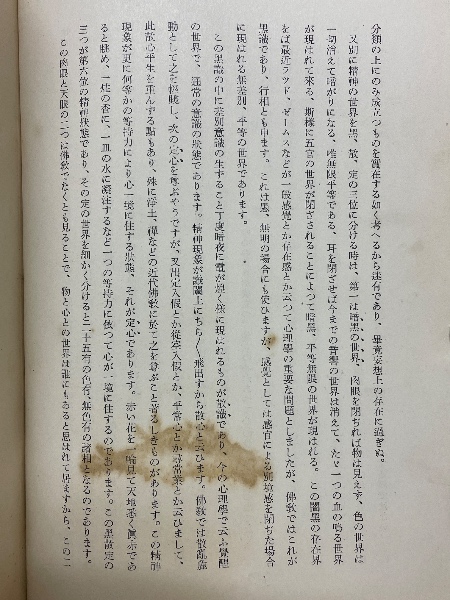 分類の上にのみ成立つものを潜在する如く考へるから迷有であり、畢竟妄想上の存在に過ぎぬ。
又別に精神の世界を黒、散、定の三位に分ける時は、第一は暗黒の世界、肉眼を閉ぢれば物は見えず、色の世界は
一切消えて暗がりになる。唯無限平等である、耳を閉させば今までの音響の世界は消えて、たゞ一つの血の鳴る世界
が現はれて來る、斯樣に五官の世界が閉ざされることによつて暗黒、平等無限の世界が現はれる。この闇黒の存在界
をば最近ラッド、ゼームスなどが一般感覺とか存在感とか云つて心理學の重要な問題としましたが、佛敎ではこれが
黒識であり、行相とも申ます。これは黒、無明の場合にも使ひますが、感覺としては感官による別境感を閉ぢた場合
に現はれる無差別、平等の世界であります。
この黒識の中に差別意識の生ずること丁度暗夜に電が煌く樣に現はれるものが散識であり、今の心理學で云ふ覺醒
の世界で、通常の意識の狀態であります。精神現象が識閾上にちら〱飛出すから散心と云ひます。佛敎では散亂麁
動として之を輕賤し、次の定心を尊ぶやうですが、又出定入假とか從空入假とか、平常心とか尋常業とか云ひまして、
此散心平生を重んずる點もあり、殊に淨土、禪などの近代佛敎に於て之を尊ぶこと著るしきものがあります。この精神
現象が更に何等かの等持力により心一境に住する狀態、それが定心であります。赤い花を一輪見て天地悉く眞赤であ
ると眺め、一炷の香に、一皿の水に凝注するなど一つの等持力に依つて心が一境に住するのであります。この黒散定の
三つが第六位の精神狀態であり、その定の世界を細かく分けると二十五有の色有、無色有の諸相となるのであります。
この肉眼と天眼の二つは佛敎でなくとも見ることで、物と心との世界は誰にもあると思はれて居ますから、この二